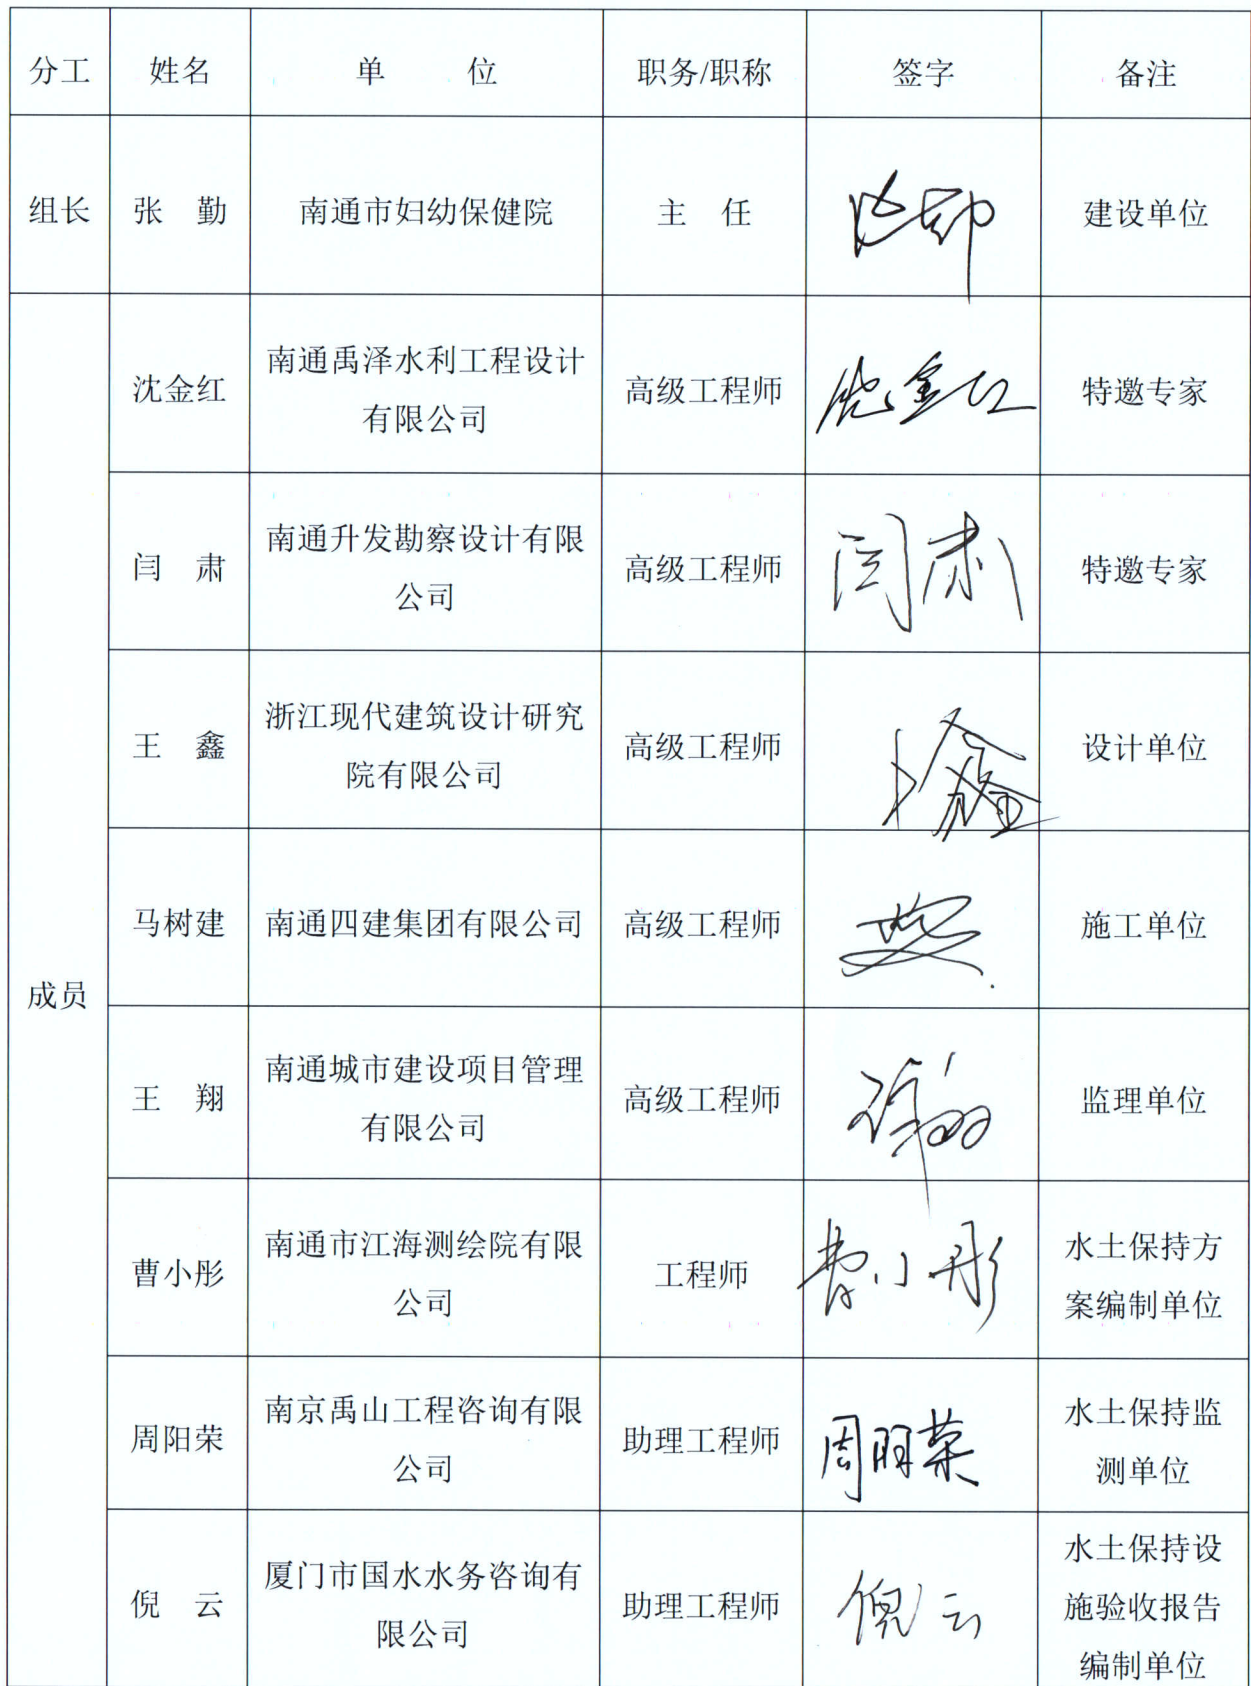 分工 姓名 单 位 职务/职称 签字 备注
组长 张 勤 南通市妇幼保健院 主 任 建设单位
成员
沈金红 南通禹泽水利工程设计
有限公司 高级工程师 沈金红 特邀专家
闫 肃 南通升发勘察设计有限
公司 高级工程师 闫肃 特邀专家
王 鑫 浙江现代建筑设计研究
院有限公司 高级工程师 设计单位
马树建 南通四建集团有限公司 高级工程师 施工单位
王 翔 南通城市建设项目管理
有限公司 高级工程师 监理单位
曹小彤 南通市江海测绘院有限
公司 工程师 曹小彤 水土保持方
案编制单位
周阳荣 南京禹山工程咨询有限
公司 助理工程师 周阳荣 水土保持监
测单位
倪 云 厦门市国水水务咨询有
限公司 助理工程师 倪云 水土保持设
施验收报告
编制单位